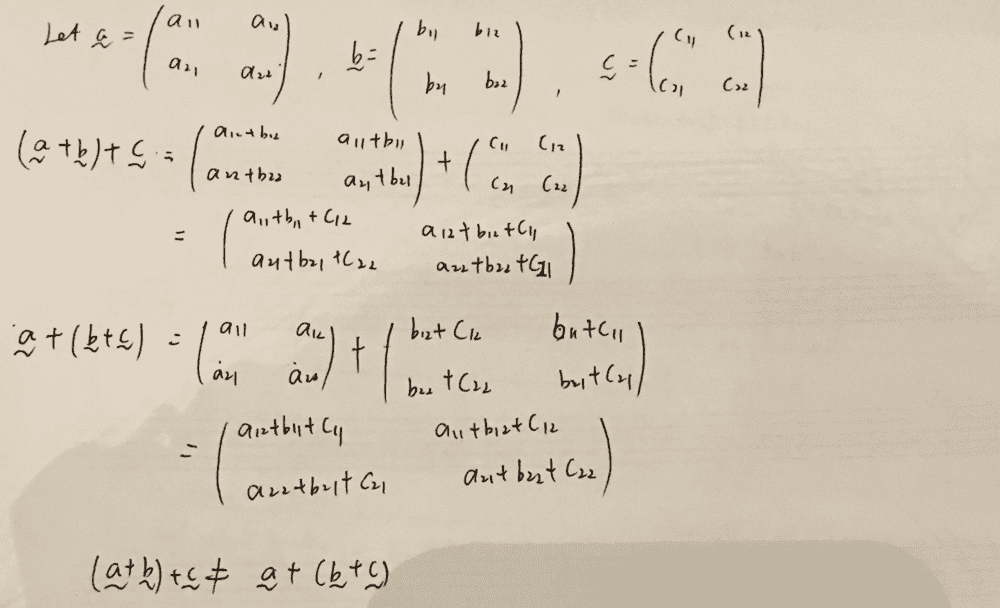 Let a = (a₁₁ a₁₂ / a₂₁ a₂₂), b = (b₁₁ b₁₂ / b₂₁ b₂₂), c = (c₁₁ c₁₂ / c₂₁ c₂₂)
(a + b) + c = (a₁₂+b₁₂ a₁₁+b₁₁ / a₂₂+b₂₂ a₂₁+b₂₁) + (c₁₁ c₁₂ / c₂₁ c₂₂)
= (a₁₁+b₁₁+c₁₂ a₁₂+b₁₂+c₁₁ / a₂₁+b₂₁+c₂₂ a₂₂+b₂₂+c₂₁)
a + (b+c) = (a₁₁ a₁₂ / a₂₁ a₂₂) + (b₁₂+c₁₂ b₁₁+c₁₁ / b₂₂+c₂₂ b₂₁+c₂₁)
= (a₁₂+b₁₁+c₁₁ a₁₁+b₁₂+c₁₂ / a₂₂+b₂₁+c₂₁ a₂₁+b₂₂+c₂₂)
(a+b)+c ≠ a + (b+c)